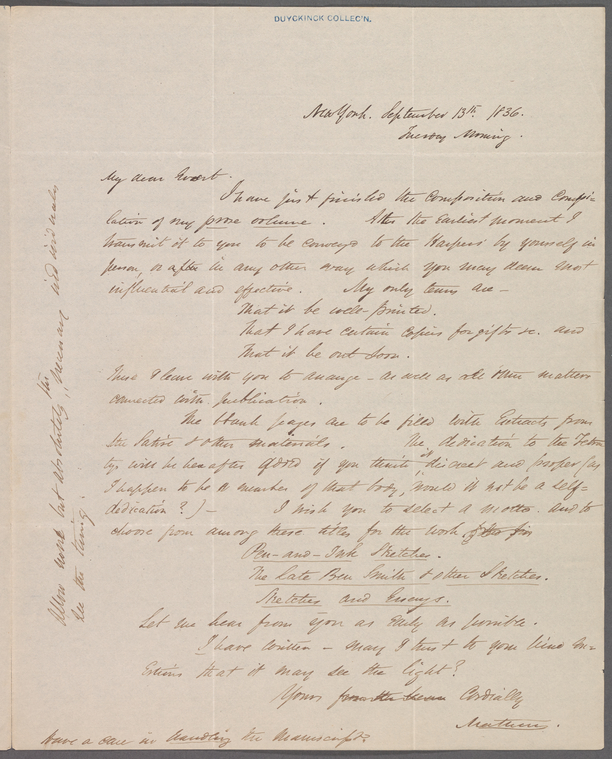 DUYCKINCK COLLEC'N.
New York. September 13th. 1836.
Tuesday Morning.
My dear Evert.
I have just finished the Composition and Compi-
lation of my prose volume. At the Earliest moment I
transmit it to you to be conveyed to the Harpers by yourself in
person, or after in any other way which you may deem most
influential and effective. My only terms are –
That it be well-printed.
That I have certain Copies for gifts &c. and
That it be out soon.
These I leave with you to arrange – as well as all other matters
connected with publication.
The blank pages are to be filled with Extracts from
the Satire & other materials. The dedication to the
will be hereafter added if you think it discreet and proper (as
I happen to be a member of that body, would it not be a self-
dedication?) – I wish you to select a motto. and to
choose from among these titles for the work
Pen-and-Ink Sketches.
The Late Ben Smith & other Sketches.
Sketches and Essays.
Let me hear from you as Early as possible.
I have written – may I trust to your kind
Exertions that it may see the light?
Yours Cordially
Mathews.
Have a care in handling the Manuscript:
Allow none but absolutely necessary individuals